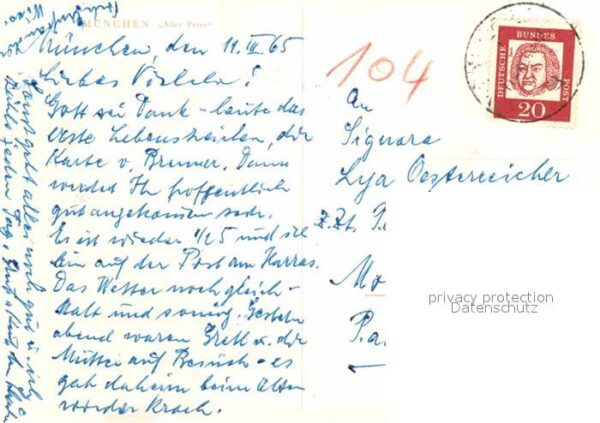 MÜNCHEN „Alter Peter“
München, den 11.III.65
Liebes
Gott sei Dank - heute das
erste Lebenszeichen, die
Karte v. Brenner. Dann
werdet Ihr hoffentlich
gut angekommen sein.
Es ist wieder 1/2 5 und ich
bin auf der Post am Harras.
Das Wetter noch gleich -
kalt und sonnig. Gestern
abend waren Gretl u. die
Mutter auf Besuch - es
gab daheim beim Alten
wieder Krach.
Sonst geht alles
jeden Tag.
104
An
Signora
Lya Oesterreicher
z. Zt.
Mo
P.a.
DEUTSCHE BUNDES POST
20
privacy protection
Datenschutz